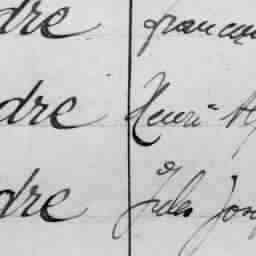 dre francois
dre Henri
dre Jules Jos